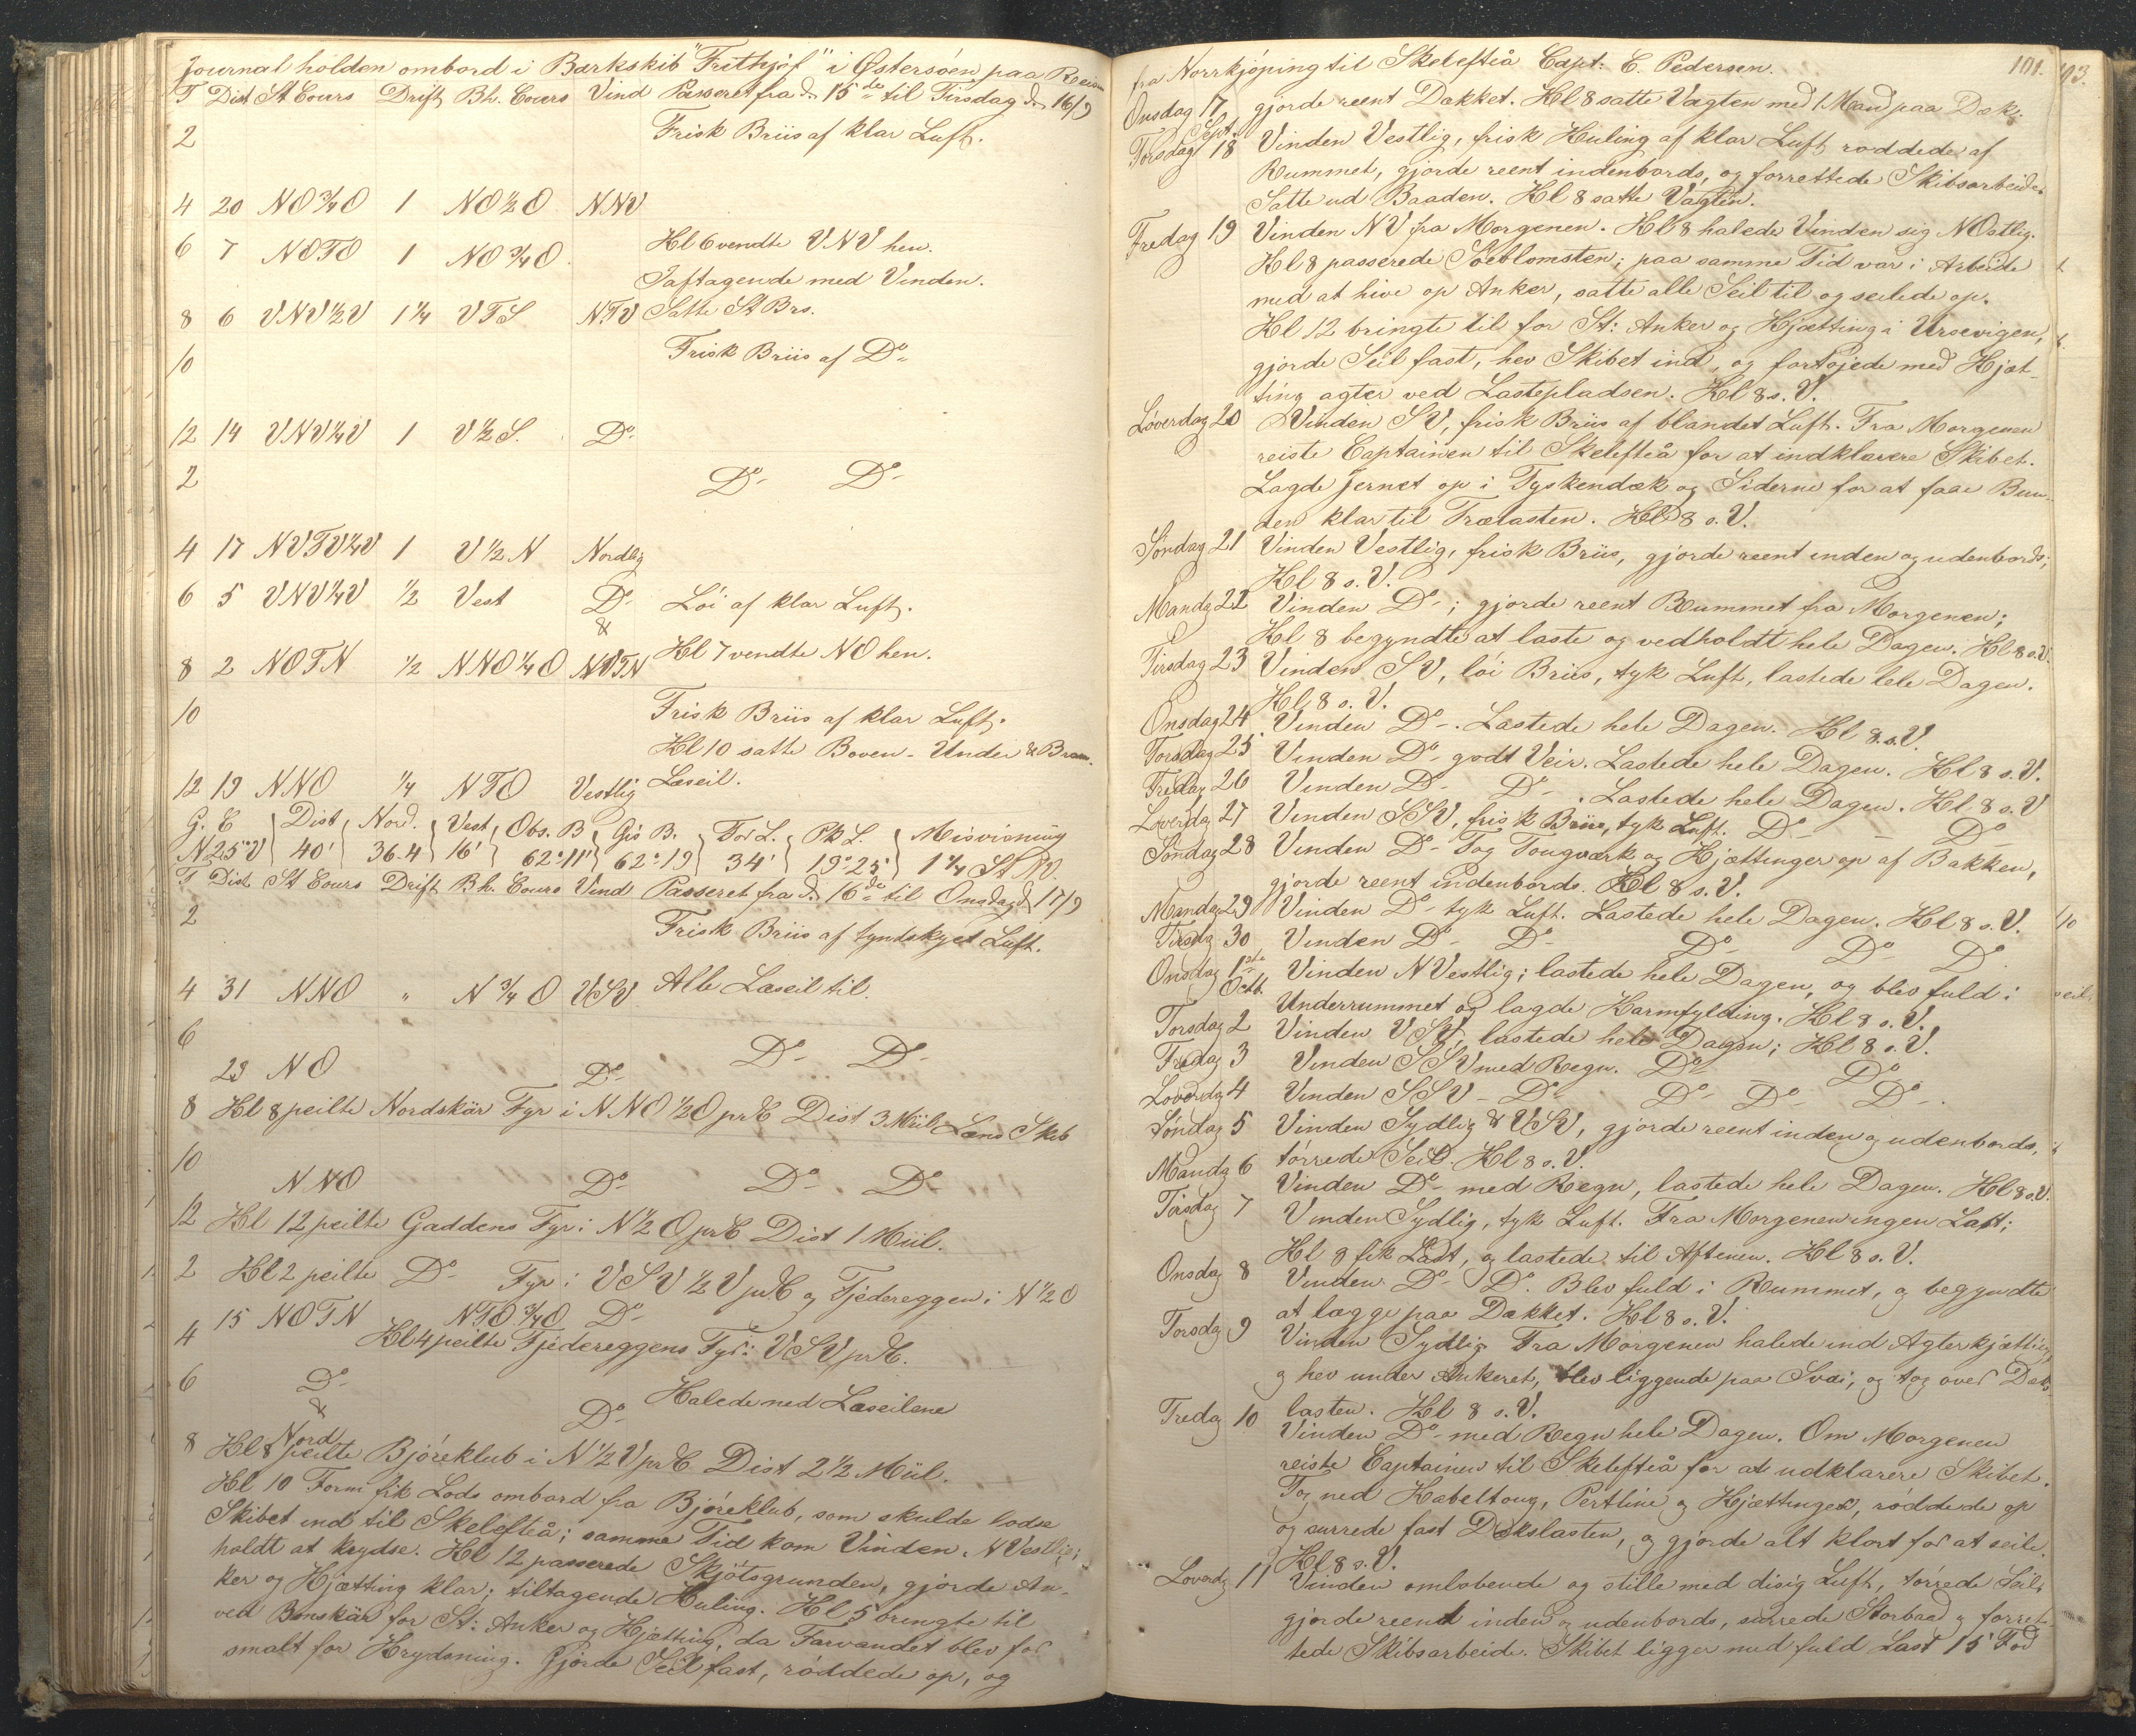 Journal holden ombord i Barkskib "Frithjof" i Østersøen paa Reisen
T Dist St Cours Drift Bh. Cours Vind Passeret fra d. 15de til Tirsdag d. 16/9
2 Frisk Briis af klar Luft.
4 20 NO3/4O 1 NO1/2O NNV
6 7 NOTO 1 NO3/4O Kl 6 vendte VNV hen.
Iaftagende med Vinden.
8 6 VNV1/2V 1 1/4 VTS NTV Satte St Brs.
10 Frisk Briis af Do
12 14 VNV1/4V 1 V1/2S. Do
2 Do Do
4 17 NVTV1/4V 1 V1/2N Nordlig
6 5 VNV1/4V 1/2 Vest Do Löi af klar Luft.
&
8 2 NOTN 1/2 NNO1/4O NVTN Kl 7 vendte NO hen.
10 Frisk Briis af klar Luft.
Kl 10 satte Boven- Under & Bram-
12 19 NNO 1/4 NTO Vestlig Læseil.
G. C Dist Nord. Vest Obs. B Gis B. For L. Pk L. Misvisning
N25°V 40' 36.4 16' 62°11' 62°19 34' 19°25' 1 1/4 St NV.
T Dist St Cours Drift Bh. Cours Vind Passeret fra d. 16de til Onsdag d. 17/9
2 Frisk Briis af tyndskyet Luft.
4 31 NNO " N3/4O VSV Alle Læseil til.
6 Do Do
23 NO Do
8 Kl 8 peilte Nordskär Fyr i NNO1/2O prC Dist 3 Miil Læns Skib
10
NNO Do Do Do
12 Kl 12 peilte Gaddens Fyr i N1/2O prC Dist 1 Miil.
2 Kl 2 peilte Do Fyr i VSV1/2V prC og Fjedereggen i N1/2O
15 NOTN NTO3/4O Do
4 Kl 4 peilte Fjedereggens Fyr i VSV prC.
6 Do Halede ned Læseilene
& Do
Nord
8 Kl 8 peilte Björeklub i N1/2V prC Dist 2 1/2 Miil.
Kl 10 Form fik Lods ombord fra Björeklub, som skulde lodse
Skibet ind til Skelefteå; samme Tid kom Vinden NVestlig;
holdt at krydse. Kl 12 passerede Skjötsgrunden, gjorde An-
ker og Kjætting klar; tiltagende Kuling. Kl 5 bringte til
ved Bonskär for St: Anker og Kjætting, da Farvandet blev for
smalt for Krydsning. Gjorde Seil fast, röddede op, og
fra Norrkjöping til Skelefteå Capt: C. Pedersen. 101.
Onsdag 17 gjorde reent Dækket. Kl 8 satte Vagten med 1 Mand paa Dæk.
Sept.
Torsdag 18 Vinden Vestlig, frisk Kuling af klar Luft röddede af
Rummet, gjorde reent indenbords, og forrettede Skibsarbeide.
Satte ud Baaden. Kl 8 satte Vagten.
Fredag 19 Vinden NV fra Morgenen. Kl 8 halede Vinden sig NOstlig.
Kl 8 passerede Söeblomsten; paa samme Tid var i Arbeide
med at hive op Anker, satte alle Seil til og seilede op.
Kl 12 bringte til for St: Anker og Kjætting i Ursevigen,
gjorde Seil fast, hev Skibet ind, og fortöjede med Kjæt-
ting agter ved Lastepladsen. Kl 8 s. V.
Löverdag 20 Vinden SV, frisk Briis af blandet Luft. Fra Morgenen
reiste Captainen til Skelefteå for at indklarere Skibet.
Lagde Jernet op i Tyskendæk og Siderne for at faae Bun-
den klar til Trælasten. Kl 8 s. V.
Söndag 21 Vinden Vestlig, frisk Briis, gjorde reent inden og udenbords;
Kl 8 s. V.
Mandg 22 Vinden Do; gjorde reent Rummet fra Morgenen;
Kl 8 begyndte at laste og vedholdt hele Dagen. Kl 8 s. V.
Tirsdag 23 Vinden SV, löi Briis, tyk Luft, lastede hele Dagen.
Kl 8 s. V.
Onsdag 24 Vinden Do. Lastede hele Dagen. Kl 8. s. V.
Torsdag 25 Vinden Do godt Veir. Lastede hele Dagen. Kl 8 s. V.
Fredag 26 Vinden Do Do. Lastede hele Dagen. Kl. 8 s. V
Lverdg 27 Vinden SSV, frisk Briis, tyk Luft. Do - Do
Söndag 28 Vinden Do Tog Tougværk og Kjættinger op af Bakken,
gjorde reent indenbords. Kl 8 s. V.
Mandag 29 Vinden Do tyk Luft. Lastede hele Dagen. Kl 8 s. V.
Tirsdg 30 Vinden Do Do Do Do Do
Onsdag 1ste Vinden NVestlig; lastede hele Dagen, og blev fuld i
Octb. Underrummet og lagde Karmfylding. Kl 8 s. V.
Torsdag 2 Vinden VSV, lastede hele Dagen; Kl 8 s. V.
Fredag 3 Vinden SSV med Regn. Do Do
Loverdg 4 Vinden SSV - Do Do Do Do.
Söndag 5 Vinden Sydlig & VSV, gjorde reent inden og udenbords,
törrede Seil. Kl 8 s. V.
Mandg 6 Vinden Do med Regn, lastede hele Dagen. Kl 8 s. V.
Tirsdag 7 Vinden Sydlig, tyk Luft. Fra Morgenen ingen Last;
Kl 8 fik Last, og lastede til Aftenen. Kl 8 s. V.
Onsdag 8 Vinden Do Do. Blev fuld i Rummet, og begyndte
at lægge paa Dækket. Kl 8 s. V.
Torsdg 9 Vinden Sydlig. Fra Morgenen halede ind Agterkjætting,
og hev under Ankeret, blev liggende paa Svai, og tog over Dæks-
lasten. Kl 8 s. V.
Fredag 10 Vinden Do med Regn hele Dagen. Om Morgenen
reiste Captainen til Skelefteå for at udklarere Skibet.
Tog ned Kabeltoug, Pertline og Kjættinger, röddede op
og surrede fast Dækslasten, og gjorde alt klart for at seile.
Kl 8 s. V.
Loverdg 11 Vinden omlöbende og stille med disig Luft, törrede Seil,
gjorde reent inden og udenbords, surrede Storbaad og forret-
tede Skibsarbeide. Skibet ligger med fuld Last 15 Fod